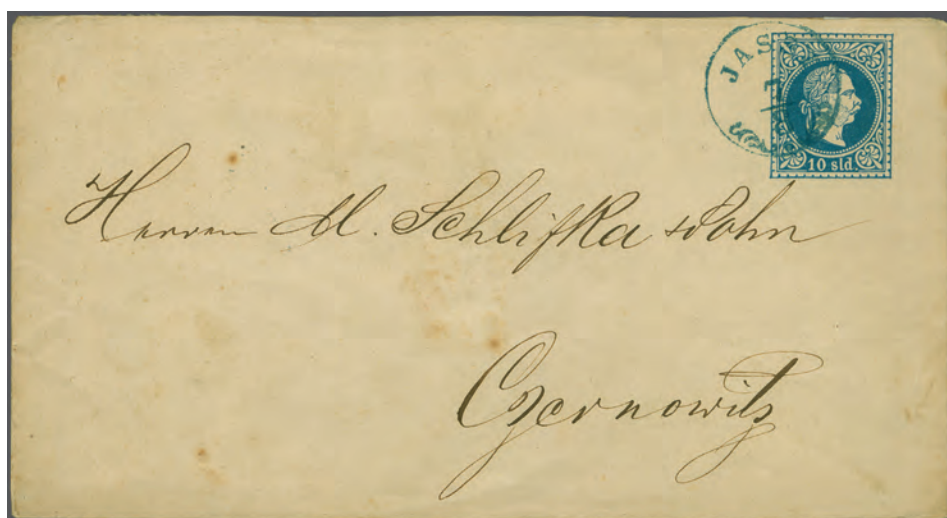 JASS
10 sld.
Herren M. Schlifka & Sohn
Czernowitz